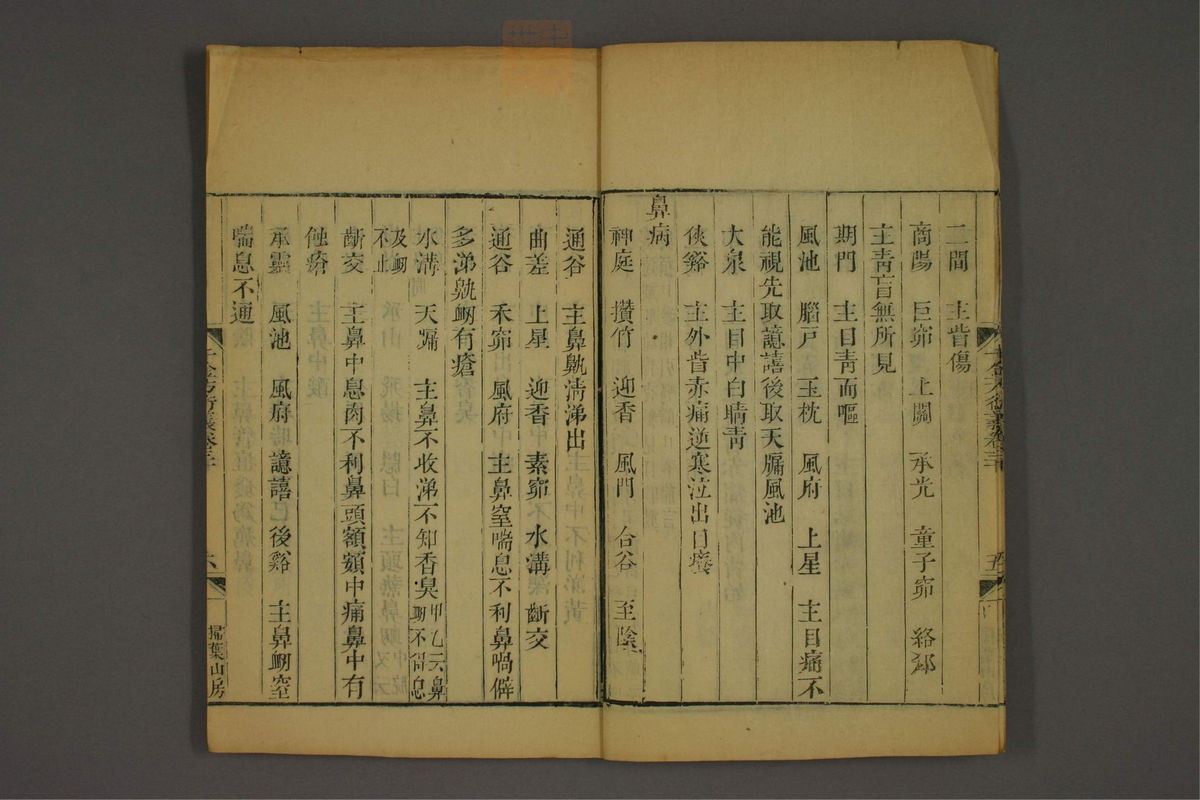 二間　主眥傷
商陽　巨窌　上關　承光　童子窌　絡郄
主靑盲無所見
期門　主目靑而嘔
風池　腦戸　玉枕　風府　上星　主目痛不
能視先取譩譆後取天牖風池
大泉　主目中白睛靑
俠谿　主外眥赤痛逆寒泣出目癢
鼻病
神庭　攢竹　迎香　風門　合谷　至陰
通谷　主鼻鼽淸涕出
曲差　上星　迎香　素窌　水溝　齗交
通谷　禾窌　風府　主鼻窒喘息不利鼻喎僻
多涕鼽衂有瘡
水溝　天牖　主鼻不收涕不知香臭 甲乙云鼻衂不得息
及衂不止
齗交　主鼻中息肉不利鼻頭額頞中痛鼻中有
蝕瘡
承靈　風池　風府　譩譆　後谿　主鼻衂窒
喘息不通
千金方衍義卷三十
六
掃葉山房